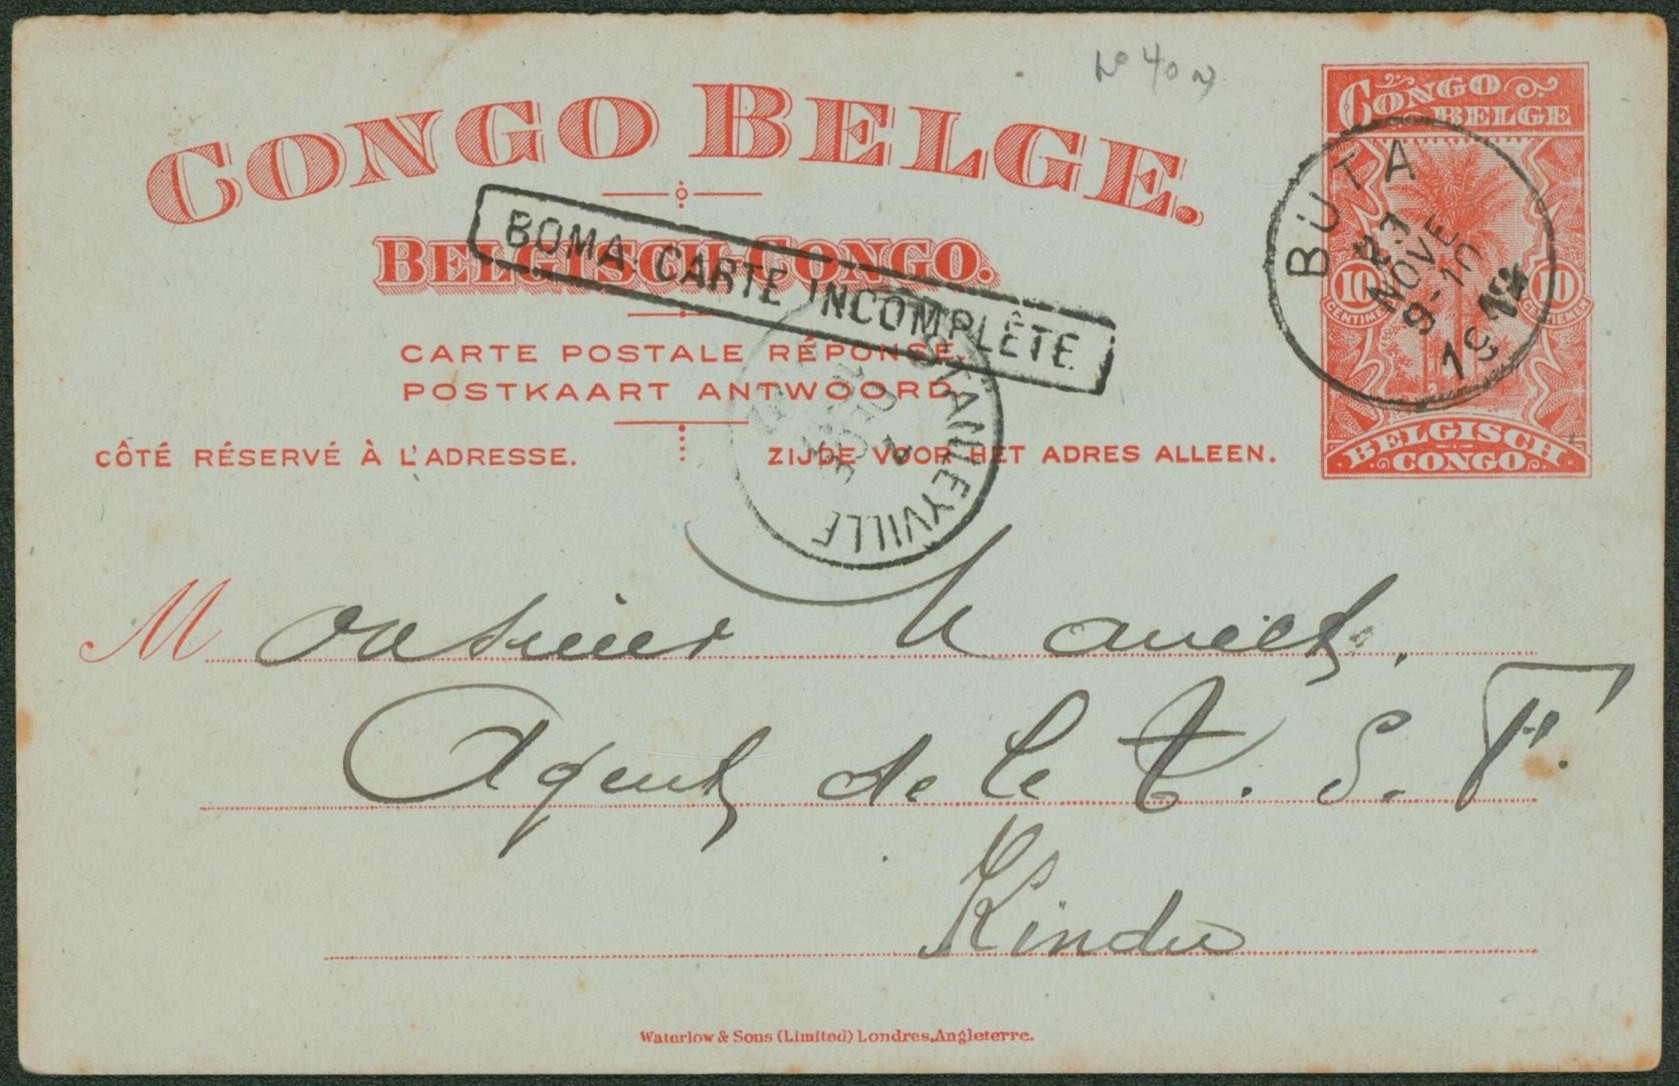 No 40
CONGO BELGE.
BELGISCH-CONGO.
CARTE POSTALE RÉPONSE.
POSTKAART ANTWOORD.
CÔTÉ RÉSERVÉ À L'ADRESSE.
ZIJDE VOOR HET ADRES ALLEEN.
CONGO
BELGE
10
CENTIMES
10
CENTIEMEN
BELGISCH
CONGO
BUTA
NOVE
9-10
BOMA. CARTE INCOMPLÈTE.
STANLEYVILLE
Monsieur
Agent de la T. S. F.
Kindu
Waterlow & Sons (Limited) Londres, Angleterre.